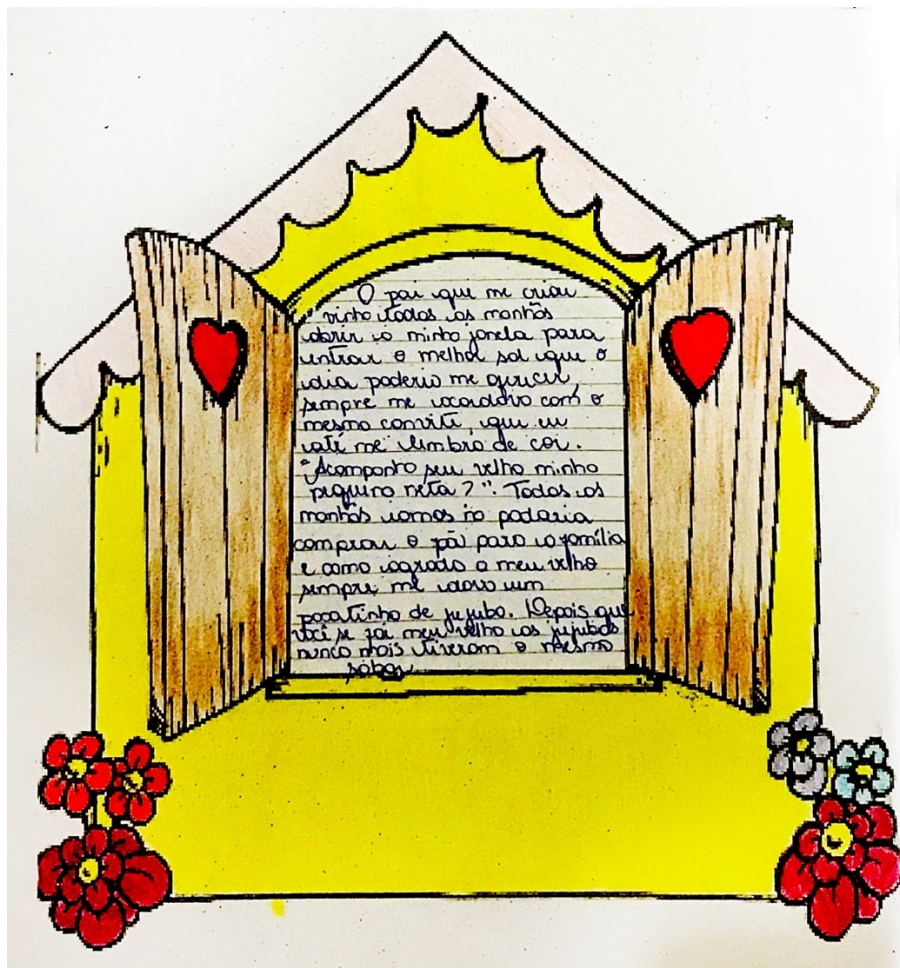 O pai que me criou
vinha todas as manhãs
abrir a minha janela para
entrar o melhor sol que o
dia poderia me oferecer,
sempre me acordava com o
mesmo convite, que eu
até me lembro de cor.
"Acompanha seu velho minha
pequena neta?". Todas as
manhãs iamos na padaria
comprar o pão para a família
e como agrado o meu velho
sempre me dava um
pacotinho de jujuba. Depois que
você se foi meu velho as jujubas
nunca mais tiveram o mesmo
sabor